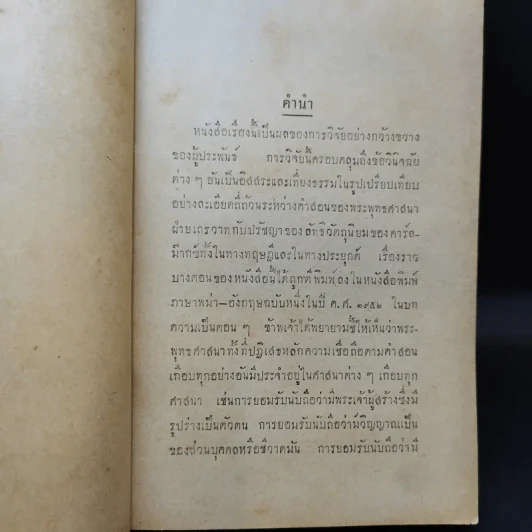 คำนำ
หนังสือเรื่องนี้เป็นผลของการวิจัยอย่างกว้างขวาง
ของผู้ประพันธ์ การวิจัยนี้ครอบคลุมถึงข้อวินิจฉัย
ต่าง ๆ อันเป็นอิสสระและเที่ยงธรรมในรูปเปรียบเทียบ
อย่างละเอียดถี่ถ้วนระหว่างคำสอนของพระพุทธศาสนา
ฝ่ายเถรวาทกับปรัชญาของลัทธิวัตถุนิยมของคาร์ล-
ม๊ากซ์ทั้งในทางทฤษฎีและในทางประยุกต์ เรื่องราว
บางตอนของหนังสือนี้ได้ถูกตีพิมพ์ลงในหนังสือพิมพ์
ภาษาพม่า—อังกฤษฉบับหนึ่งในปี ค.ศ. ๑๙๕๒ ในบท
ความเป็นตอน ๆ ข้าพเจ้าได้พยายามชี้ให้เห็นว่าพระ-
พุทธศาสนาทั้งที่ปฏิเสธหลักความเชื่อถือตามคำสอน
เกือบทุกอย่างอันมีประจำอยู่ในศาสนาต่าง ๆ เกือบทุก
ศาสนา เช่นการยอมรับนับถือว่ามีพระเจ้าผู้สร้างซึ่งมี
รูปร่างเป็นตัวตน การยอมรับนับถือว่ามีวิญญาณเป็น
ของส่วนบุคคลหรือชีวาตมัน การยอมรับนับถือว่ามี